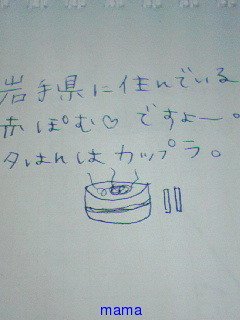 岩手県に住んでいる
赤ぽむ♡ ですよー。
夕はんはカップラ。
mama